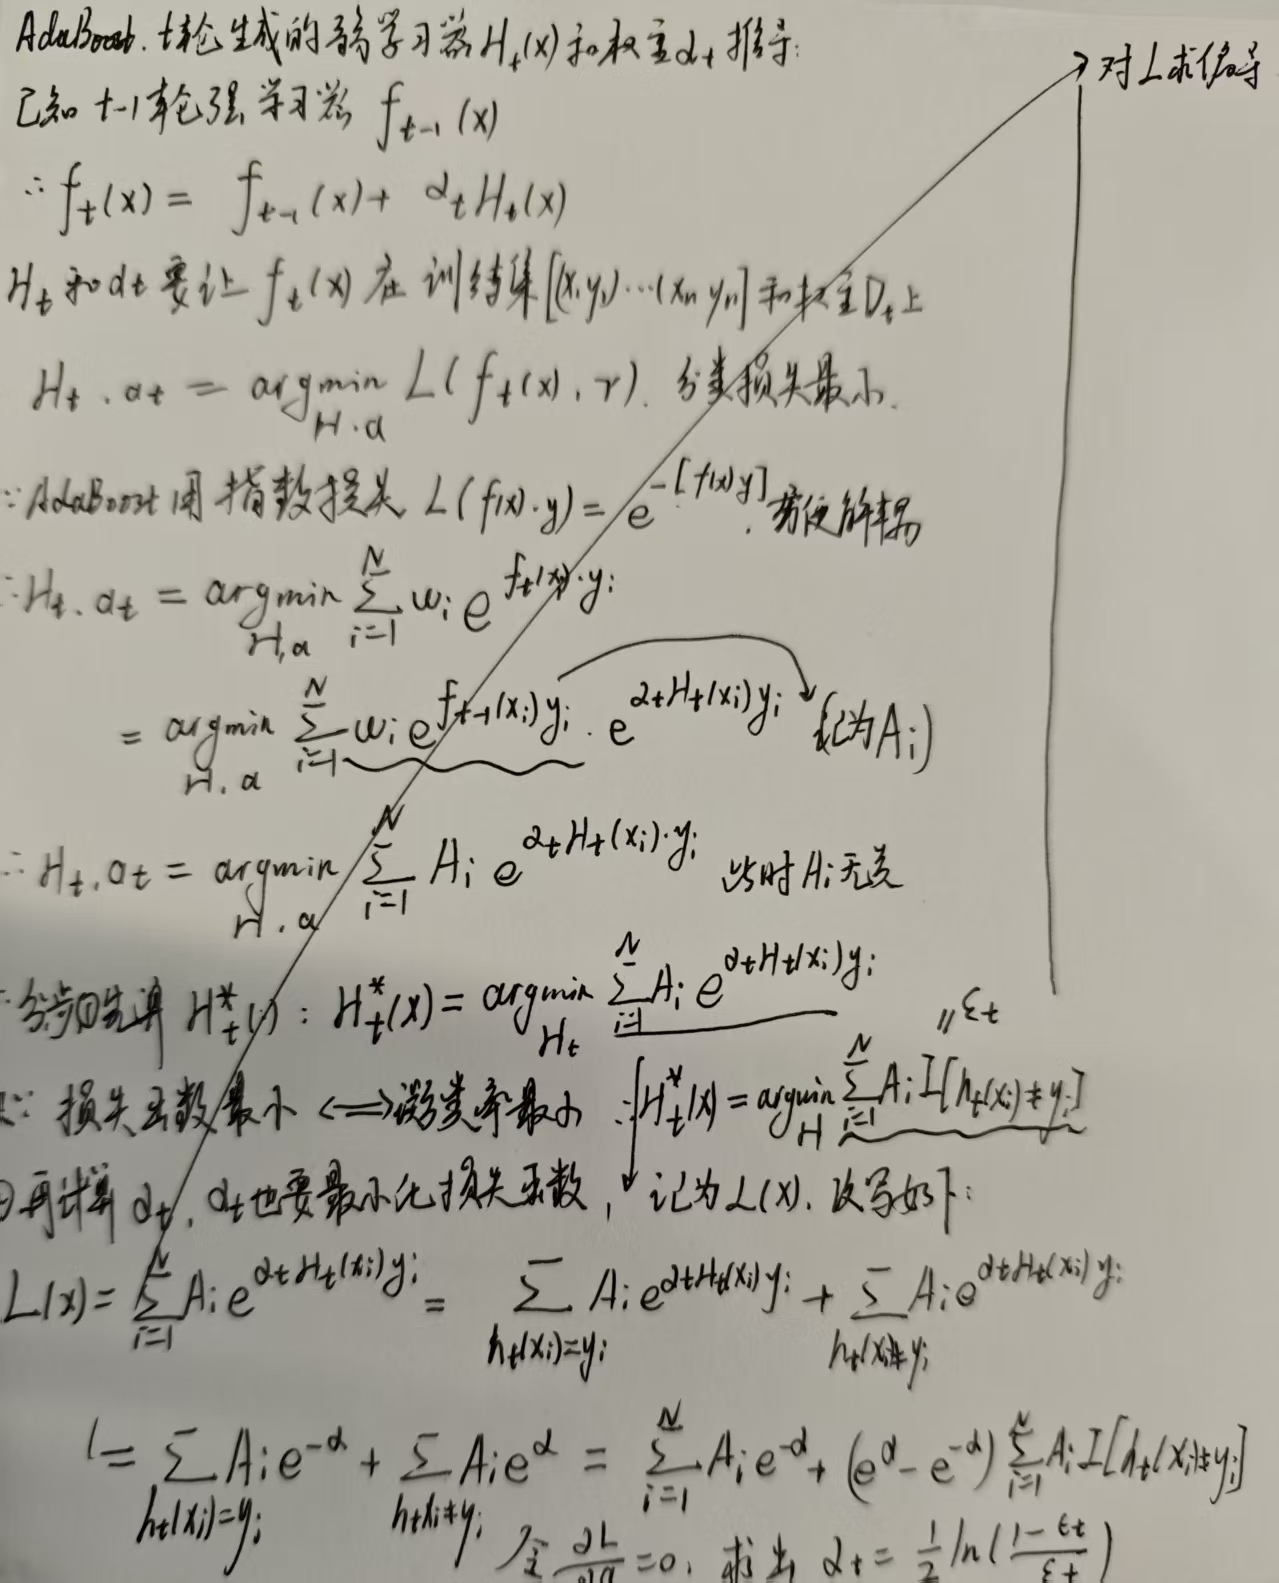 AdaBoost. t轮生成的弱学习器H_t(x)和权重α_t推导:
→对L求偏导
已知 t-1轮强学习器 f_{t-1}(x)
∴ f_t(x) = f_{t-1}(x) + α_t H_t(x)
H_t 和 α_t 要让 f_t(x) 在 训练集[(x_1y_1)…(x_n y_n] 和权重D_t上
H_t . α_t = argmin_{H.α} L(f_t(x), Y). 分类损失最小.
∵ AdaBoost用指数损失 L(f(x)·y) = e^{-[f(x)y]}. 方便解耦
∴ H_t. α_t = argmin_{H,α} Σ_{i=1}^N w_i e^{f_t(x)·y_i}
= argmin_{H.α} Σ_{i=1}^N w_i e^{f_{t-1}(x_i)y_i} · e^{α_t H_t(x_i)y_i} (记为A_i)
∴ H_t, α_t = argmin_{H.α} Σ_{i=1}^N A_i e^{α_t H_t(x_i)·y_i} 此时A_i无关
分步①先算 H_t^*(x) : H_t^*(x) = argmin_{H_t} Σ_{i=1}^N A_i e^{α_t H_t(x_i)y_i}
∵ 损失函数最小 ⟺ 误分类率最小 ∴ H_t^*(x) = argmin_H Σ_{i=1}^N A_i I[h_t(x_i)≠y_i] = ε_t
②再计算 α_t, α_t也要最小化损失函数, 记为L(x), 改写如下:
L(x) = Σ_{i=1}^N A_i e^{α_t H_t(x_i)y_i} = Σ_{h_t(x_i)=y_i} A_i e^{α_t H_t(x_i)y_i} + Σ_{h_t(x_i)≠y_i} A_i e^{α_t H_t(x_i)y_i}
= Σ_{h_t(x_i)=y_i} A_i e^{-α} + Σ_{h_t(x_i)≠y_i} A_i e^{α} = Σ_{i=1}^N A_i e^{-α} + (e^α - e^{-α}) Σ_{i=1}^N A_i I[h_t(x_i)≠y_i]
令 ∂L/∂α = 0, 求出 α_t = 1/2 ln((1-ε_t)/ε_t)